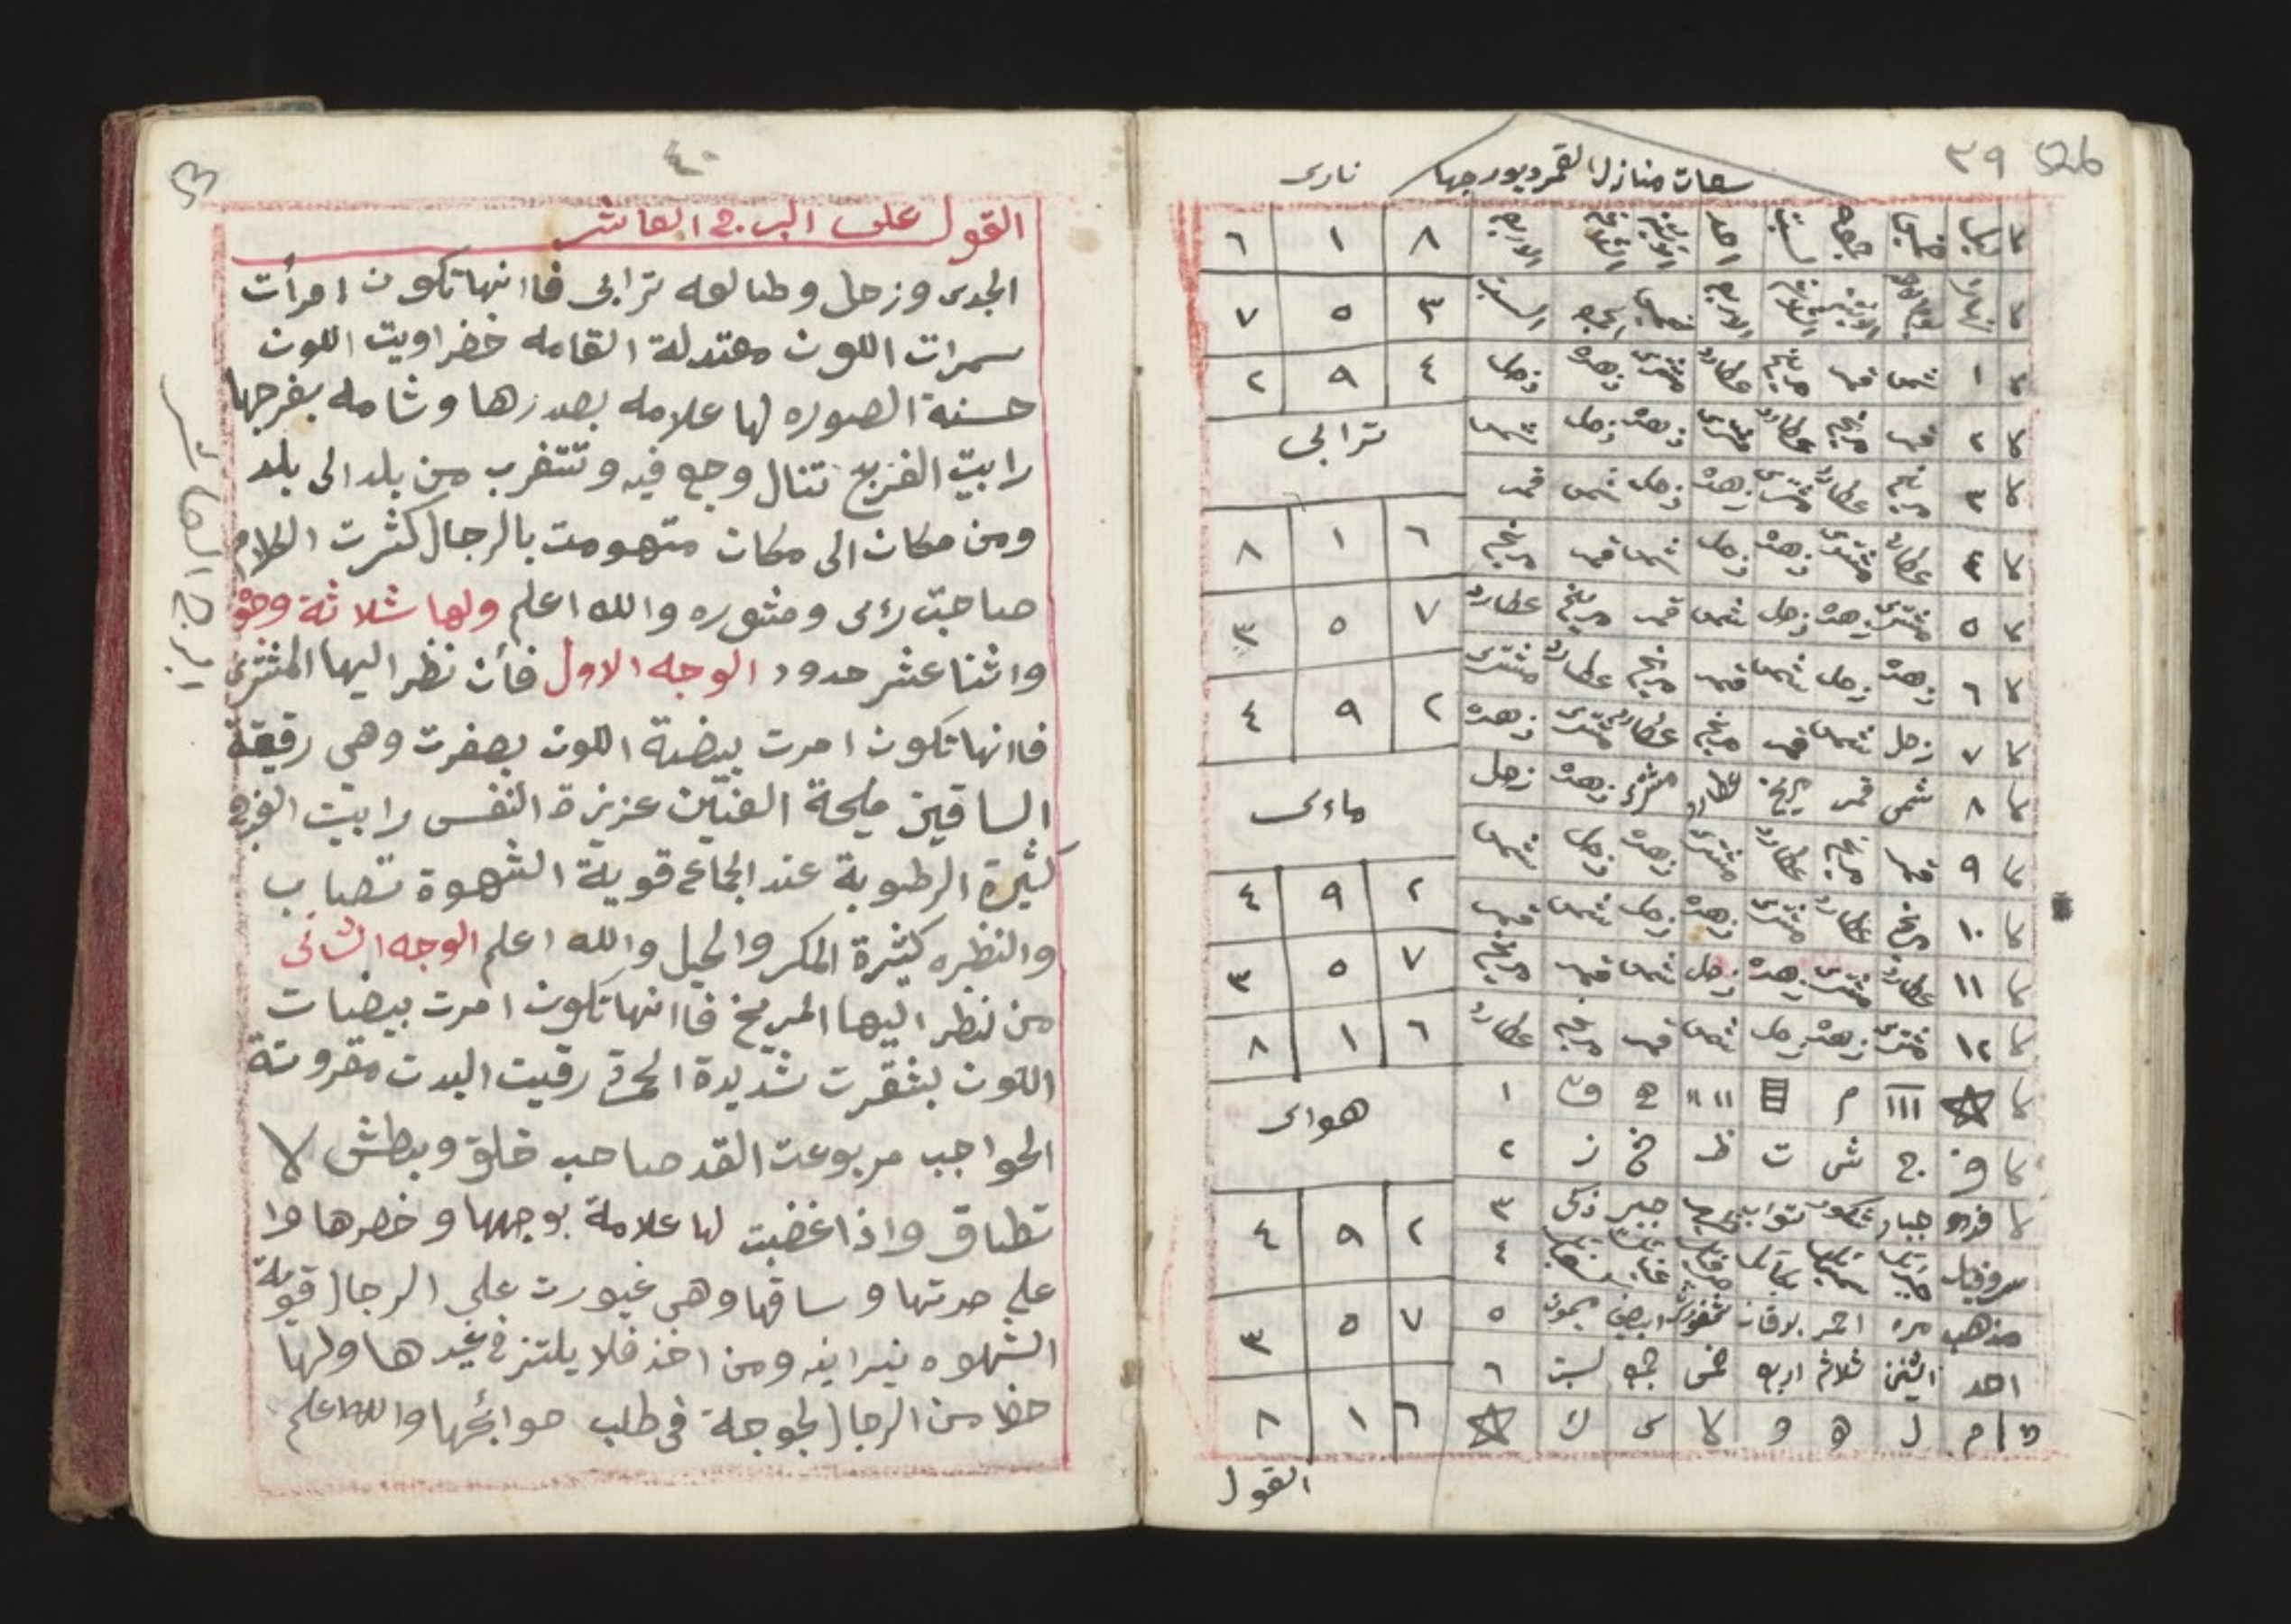 ٣٩ 52b
ساعات منازل القمر وبروجها نارى
٨ ١ ٦
٣ ٥ ٧
٤ ٩ ٢
ترابى
٦ ١ ٨
٧ ٥ ٣
٢ ٩ ٤
ماءى
٢ ٩ ٤
٧ ٥ ٣
٦ ١ ٨
هواى
٢ ٩ ٤
٧ ٥ ٣
٦ ١ ٨
١ شمس قمر مريخ عطارد مشترى زهره زحل
٢ قمر مريخ عطارد مشترى زهره زحل شمس
٣ مريخ عطارد مشترى زهره زحل شمس قمر
٤ عطارد مشترى زهره زحل شمس قمر مريخ
٥ مشترى زهره زحل شمس قمر مريخ عطارد
٦ زهره زحل شمس قمر مريخ عطارد مشترى
٧ زحل شمس قمر مريخ عطارد مشترى زهره
٨ شمس قمر مريخ عطارد مشترى زهره زحل
٩ قمر مريخ عطارد مشترى زهره زحل شمس
١٠ مريخ عطارد مشترى زهره زحل شمس قمر
١١ عطارد مشترى زهره زحل شمس قمر مريخ
١٢ مشترى زهره زحل شمس قمر مريخ عطارد
ف ج ش ث ظ خ ز ٢
فرد جبار شكور تواب خبير زكى ٣
مذهب مره احمر برقان شمهورش ابيض ميمون ٥
احد اثنين ثلاث اربع خمس جمع سبت ٦
القول
٤٠
53
القول على البرج العاشر
الجدى وزحل وطالعه ترابى فاانها تكون امرأت
سمرات اللون معتدلة القامه خضراويت اللون
حسنة الصوره لها علامه بصدرها وشامه بفرجها
رابيت الفرج تنال وجع فيه وتتغرب من بلد الى بلد
ومن مكان الى مكان متهومت بالرجال كثرت الكلام
صاحبت رءى ومشوره والله اعلم ولها ثلاثة وجوه
واثنا عشر حدود الوجه الاول فأن نظر اليها المشترى
فاانها تكون امرت بيضة اللون بصفرت وهى رقيقة
الساقين مليحة العنيّن عزيزة النفس رابيت الفرج
كثيرة الرطوبة عند الجماع قوية الشهوة تصاب
والنظره كثيرة المكر والحيل والله اعلم الوجه الثانى
من نظر اليها المريخ فاانها تكون امرت بيضات
اللون بشقرت شديدة الحمرة رقيت البدن مقرونة
الحواجب مربوعت القد صاحب خلق وبطش لا
تطاق واذا غضبت لها علامة بوجهها وخصرها وا
على صدرتها وساقها وهى غيورت على الرجال قوية
الشهوه نيرانيه ومن اخذ فلا يلتزق غيرها ولها
حظا من الرجال لجوجة فى طلب حوائجها والله اعلم
البرج العاشر